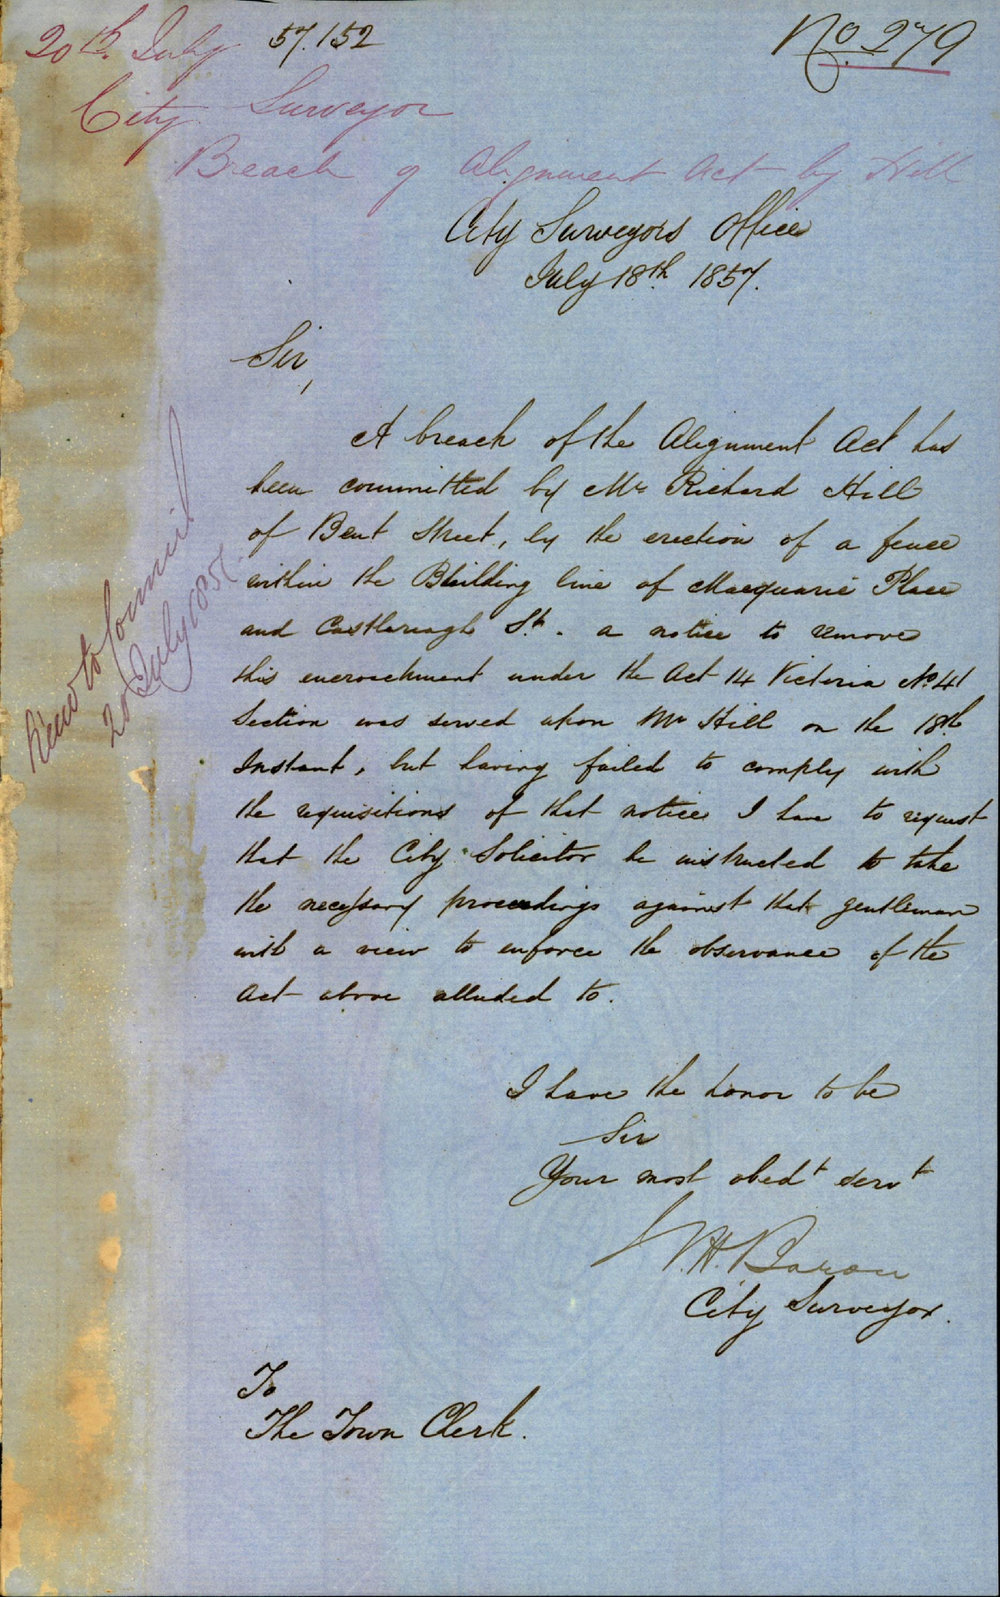 20th July 57.152 No. 279
City Surveyor
Breach of Alignment Act by Hill
City Surveyors Office
July 18th 1857.
Sir,
A breach of the Alignment Act has
been committed by Mr Richard Hill
of Bent Street, by the erection of a fence
within the Building line of Macquarie Place
and Castlereagh St. a notice to remove
this encroachment under the Act 14 Victoria No. 41
Section was served upon Mr Hill on the 18th
Instant, but having failed to comply with
the requisitions of that notice I have to request
that the City Solicitor be instructed to take
the necessary proceedings against that gentleman
with a view to enforce the observance of the
Act above alluded to.
I have the honor to be
Sir
Your most obedt servt
W.H. Baron
City Surveyor.
To
The Town Clerk.
to Council
20 July 1857.